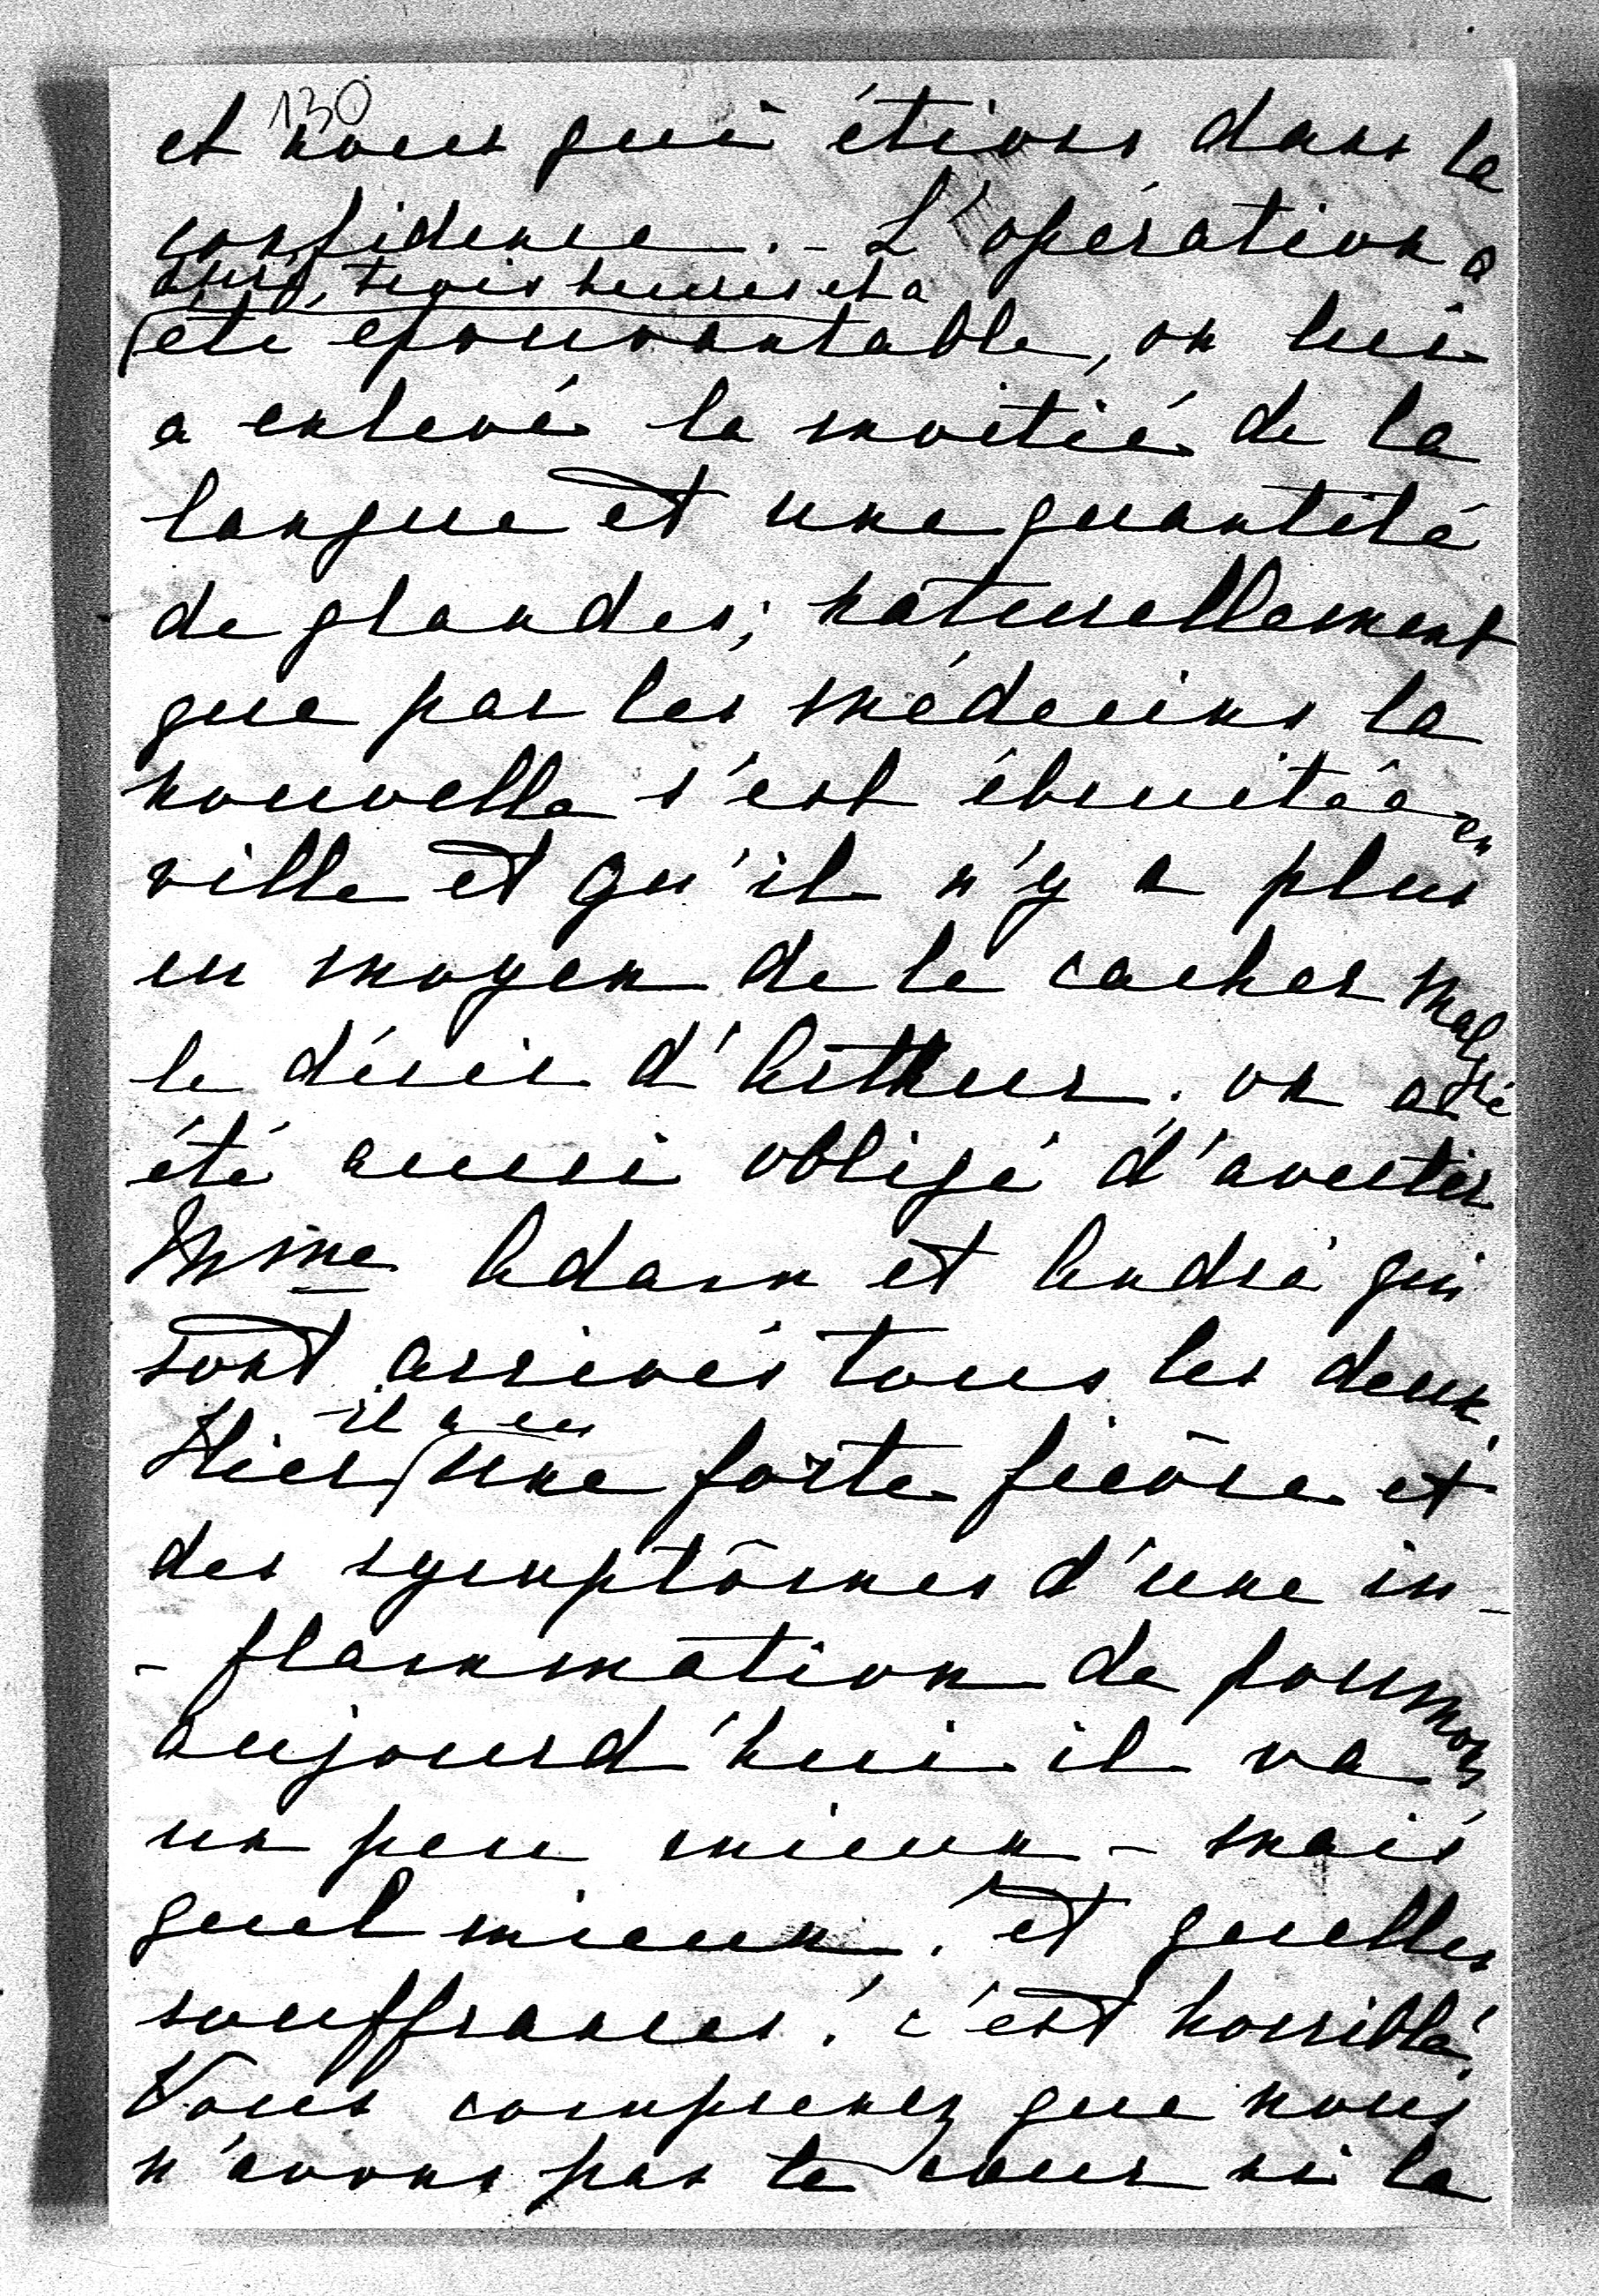 130
et nous qui étions dans la
confidence. - L'opération a
duré trois heures et a
été épouvantable, on lui
a enlevé la moitié de la
langue et une quantité
de glandes; naturellement
que par les médecins la
nouvelle s'est ébruitée en
ville et qu'il n'y a plus
eu moyen de le cacher malgré
le désir d'Arthur. on a
été aussi obligé d'avertir
Mme Adam et André qui
sont arrivés tous les deux.
il a eu
Hier une forte fièvre et
des symptômes d'une in-
- flammation de poumons
aujourd'hui il va
un peu mieux - mais
quel mieux! et quelles
souffrances! c'est horrible!
Vous comprenez que nous
n'avons pas le cœur ni la